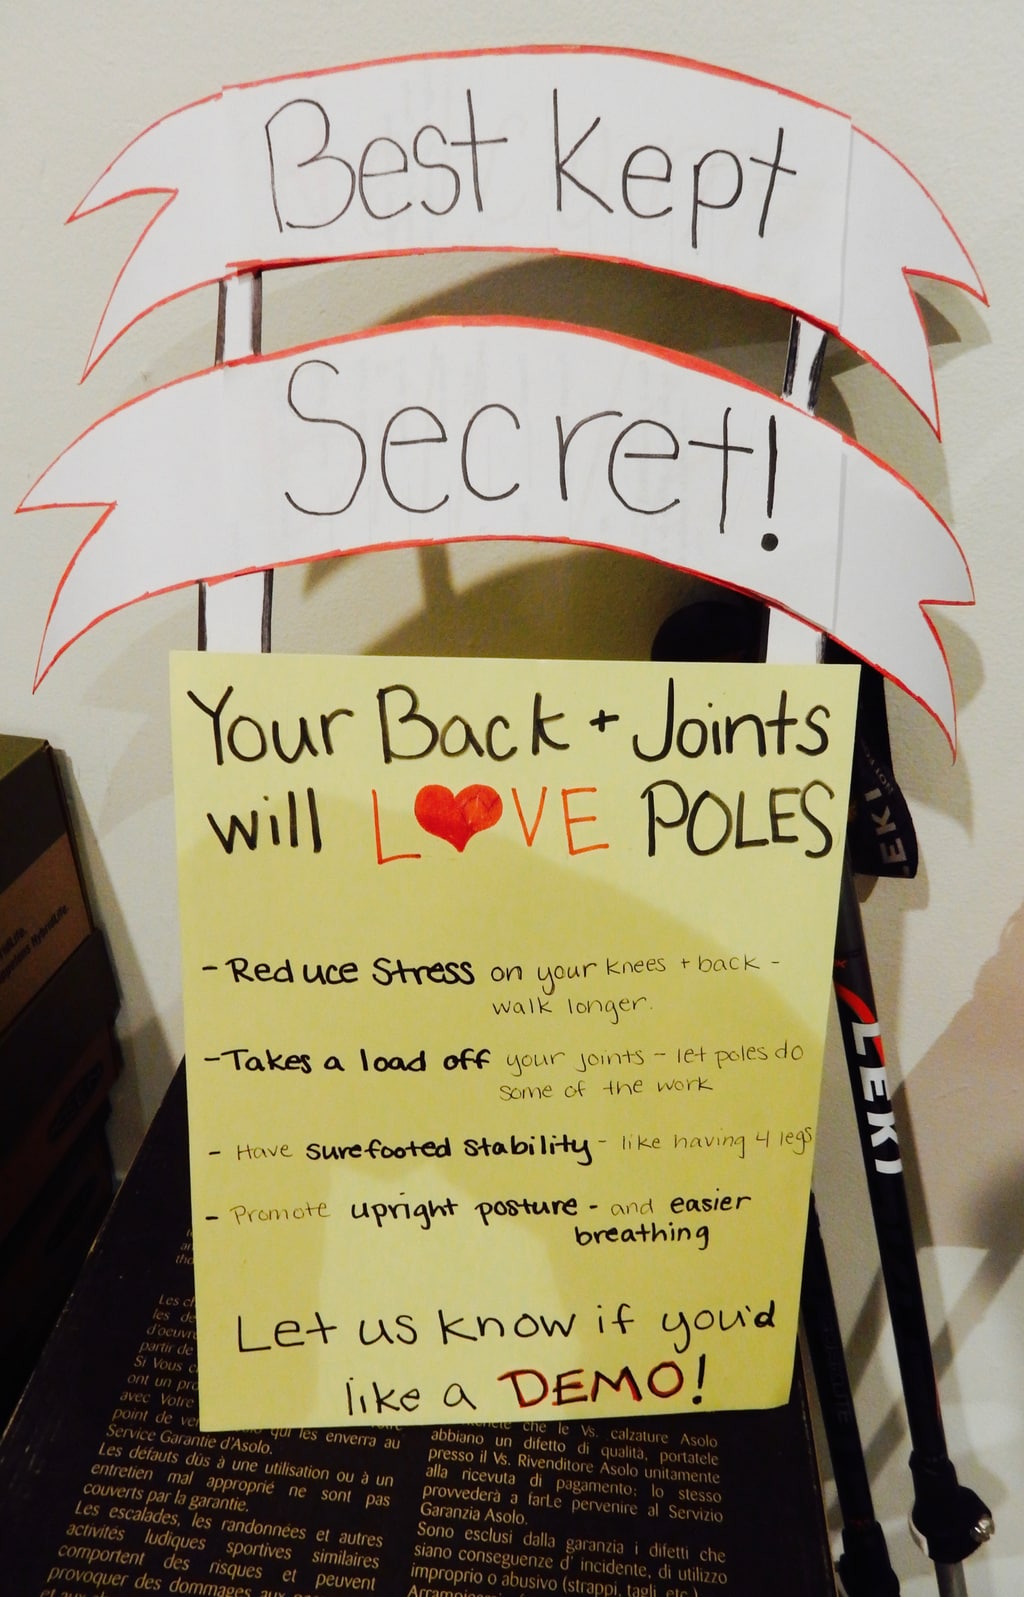 Best kept
Secret!
Your Back + Joints
will LOVE POLES
- Reduce Stress on your knees + back -
walk longer.
- Takes a load off your joints - let poles do
some of the work
- Have surefooted stability - like having 4 legs
- Promote upright posture - and easier
breathing
Let us know if you'd
like a DEMO!
LEKI
EKI
HybridLife.
Les
les
d'oeuvre
partir de
Si Vous
ont un
avec Votre
point de
qui les enverra au
Service Garantie d'Asolo.
Les défauts dûs à une utilisation ou à un
entretien mal approprié ne sont pas
couverts par la garantie.
Les escalades, les randonnées et autres
activités ludiques sportives similaires
comportent des risques et peuvent
provoquer des dommages aux
che le Vs. calzature Asolo
abbiano un difetto di qualità, portatele
presso il Vs. Rivenditore Asolo unitamente
alla ricevuta di pagamento; lo stesso
provvederà a farLe pervenire al Servizio
Garanzia Asolo.
Sono esclusi dalla garanzia i difetti che
siano conseguenze d' incidente, di utilizzo
improprio o abusivo (strappi, tagli, etc.)